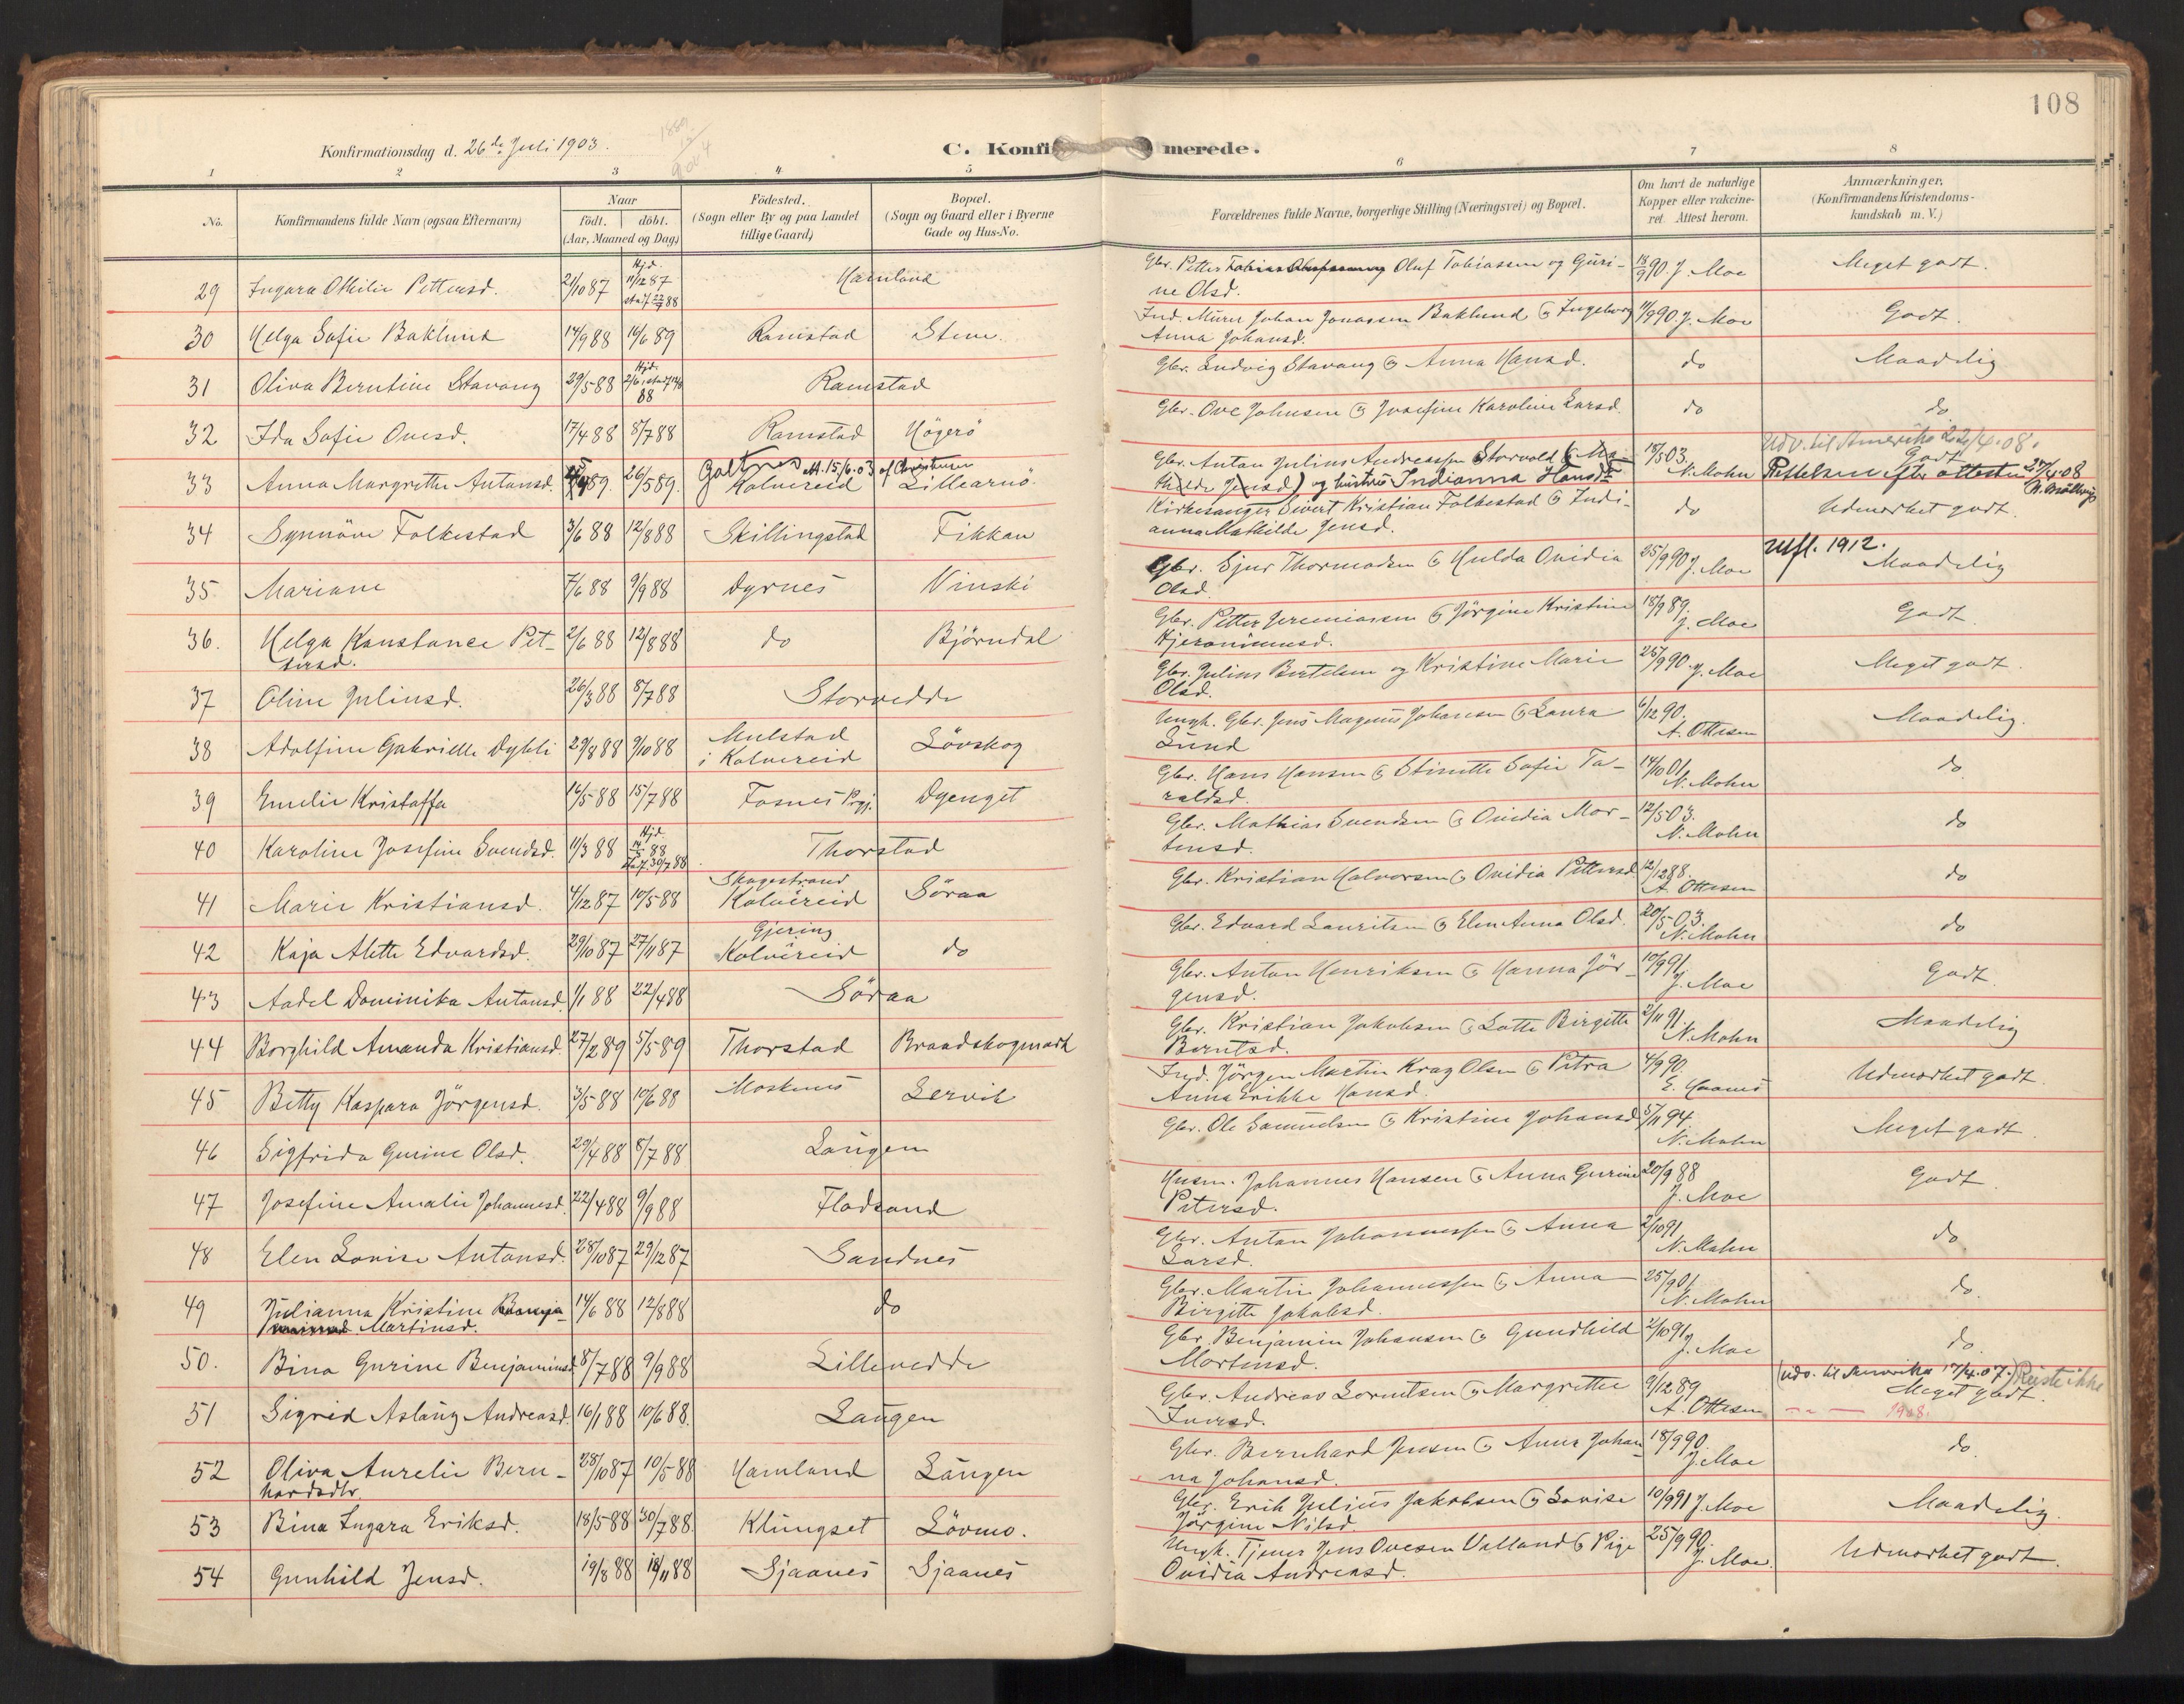 108
Konfirmationsdag d. 26de Juli 1903.
C. Konfirmerede.
1 2 3 4 5 6 7 8
No.
Konfirmandens fulde Navn (ogsaa Efternavn)
Naar
födt. döbt.
(Aar, Maaned og Dag.)
Födested.
(Sogn eller By og paa Landet
tillige Gaard)
Bopæl.
(Sogn og Gaard eller i Byerne
Gade og Hus-No.
Forældrenes fulde Navne, borgerlige Stilling (Næringsvei) og Bopæl.
Om havt de naturlige
Kopper eller vakcine-
ret. Attest herom.
Anmærkninger.
(Konfirmandens Kristendoms-
kundskab m. V.)
29 Ingara Othilie Pettersd. 21/10 87 Hjd. 11/12 87 stadf 22/7 88 Hamland Gbr. Petter Oluf Tobiassen og Guri- 18/9 90. J. Moe Meget godt.
ne Olsd.
30 Helga Sofie Baklund 14/9 88 16/6 89 Ramstad Stene. Ind. Murer Johan Jonassen Baklund & Ingeborg 11/9 90. J. Moe Godt.
Anna Johansd.
31 Oliva Berntine Stavang 29/5 88 Hjd. 2/6, stadf 88 Ramstad Gbr. Ludvig Stavang & Anna Hansd. do Maadelig
32 Ida Sofie Ovesd. 17/4 88 8/7 88 Ramstad Högerö Gbr. Ove Johnsen & Josefine Karoline Larsd. do do
Udv. til Amerika 22/4.08.
33 Anna Margrethe Antonsd. 89. 26/5 89. Galtnes att. 15/6.03 af Christensen Kolvereid Lillearnö. Gbr. Anton Julius Andreassen Storvold & Ma- 18/5 03. N. Mohn Godt
thilde Jensd.) og hustru Indianna Hansdr Rettelsen efter attest 27/4.08
34 Synnöve Folkestad 3/6 88 12/8 88 Skillingstad Fikkan Kirkesanger Sivert Kristian Folkestad & Indi- do Udmærket godt.
anna Mathilde Jensd.
Utfl. 1912.
35 Mariane 7/6 88 9/9 88 Dyrnes Vinski Gbr. Sjur Thormodsen & Hulda Ovidia 25/9 90 J. Moe Maadelig
Olsd.
36. Helga Konstance Pet- 2/6 88 12/8 88 do Björndal Gbr. Petter Jeremiassen & Jörgine Kristine 18/9 89. J. Moe Godt
tersd. Hjeronimusd.
37 Oline Juliusd. 26/3 88 8/7 88 Storvedde Gbr. Julius Bertelsen og Kristine Marie 25/9 90. J. Moe Meget godt.
Olsd.
38 Adolfine Gabrielle Dybli 29/8 88 9/10 88 Mulstad i Kolvereid Lövskog Ungk. Gbr. Jens Magnus Johansen & Laura 6/12 90. A. Ottesen Maadelig.
Lund
39 Emelie Kristoffa 16/5 88 15/7 88 Fosnes Prgj. Dyenget Gbr. Hans Hansen & Stinette Sofie Ta- 14/10 01. N. Mohn do
raldsd.
40 Karoline Josefine Svendsd. 11/3 88 Hjd. 88 stadf. 30/7 88. Thorstad Gbr. Mathias Svendsen & Ovidia Mor- 12/5 03. N. Mohn do
tensd.
41 Marie Kristiansd. 4/12 87 10/5 88 Skagestrand Kolvereid Söraa Gbr. Kristian Halvorsen & Ovidia Pettersd 12/12 88. A. Ottesen do
42 Kaja Alette Edvardsd. 29/10 87 27/11 87 Gjering Kolvereid do Gbr. Edvard Lauritsen & Elen Anna Olsd. 20/5 03. N. Mohn do
43 Aadel Dominika Antonsd. 1/1 88 22/4 88 Söraa Gbr. Anton Henriksen & Hanna Jör- 10/9 91. J. Moe Godt.
gensd.
44 Borghild Amanda Kristiansd. 27/2 89 5/5 89 Thorstad Brandskogmark Gbr. Kristian Jakobsen & Lotte Birgitte 2/11 91. N. Mohn Maadelig
Berntsd.
45 Betty Kaspara Jörgensd. 3/5 88 10/6 88 Moskenes Lervik Ind. Jörgen Martin Krag Olsen & Petra 4/9 90. Udmærket godt.
Anna Erikke Hansd.
46 Sigfrida Gurine Olsd. 29/4 88 8/7 88 Laugen Gbr. Ole Samuelsen & Kristine Johansd 5/11 94. N. Mohn Meget godt.
47 Josefine Amalie Johannesd. 22/4 88 9/9 88 Flodsand Husm. Johannes Hansen & Anna Gurine 20/9 88 J. Moe Godt
Petersd.
48 Elen Lovise Antonsd. 28/10 87 29/12 87 Sandnes Gbr. Anton Johannessen & Anna 2/10 91 N. Mohn do
Larsd.
49 Julianna Kristine Benja- 14/6 88 12/8 88 do Gbr. Martin Johannessen & Anna 25/9 01. N. Mohn do.
Martinsd. Birgitte Jakobsd.
50. Bina Gurine Benjaminsd 8/7 88 9/9 88 Lillevedde Gbr. Benjamin Johansen & Gundhild 2/10 91. J. Moe do.
Mortensd.
(udv. til Amerika 17/4.07.) Reiste ikke
51 Sigrid Aslaug Andreasd. 16/1 88 10/6 88. Laugen Gbr. Andreas Lorentsen & Margrethe 9/12 89 A. Ottesen Meget godt.
Iversd. — " — 1908.
52 Oliva Aurelie Bern- 28/10 87 10/5 88 Hamland Laugen Gbr. Bernhard Jensen & Anna Johan 18/9 90. J. Moe do
hardsdtr. na Johansd.
53 Bina Ingara Eriksd. 18/5 88 30/7 88. Klungset Lövmo. Gbr. Erik Julius Jakobsen & Lovise 10/9 91 J. Moe Maadelig.
Jörgine Nilsd.
54 Gunhild Jensd. 19/8 88 18/11 88 Sjaanes Sjaanes Ungk. Tjener Jens Ovesen Valland & Pige 25/9 90. J. Moe. Udmærket godt.
Ovidia Andreasd.